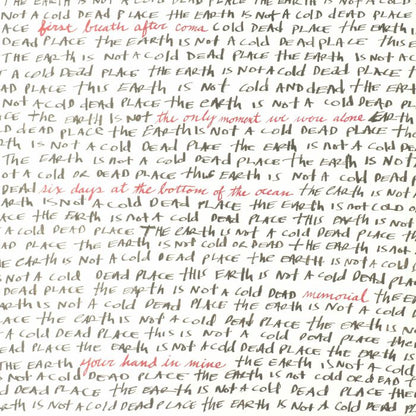 THE EARTH IS NOT A COLD DEAD PLACE THE EARTH IS
NOT A COLD DEAD PLACE THE EARTH IS NOT A COLD DEAD PLACE
ACE first breath after coma COLD DEAD PLACE THE EARTH IS
DEAD PLACE THE EARTH IS NOT A COLD DEAD PLACE THIS E
THE EARTH IS NOT A COLD DEAD PLACE THE EARTH IS NOT A C
T A COLD DEAD PLACE THE EARTH IS NOT A COLD DEAD PLACE T
AD PLACE THIS EARTH IS NOT COLD AND DEAD THE EAR
NOT A COLD DEAD PLACE THE EARTH IS NOT A COLD DEAD PL
CE THE EARTH IS NOT the only moment we were alone EARTH
LD DEAD PLACE THE EARTH IS NOT A COLD DEAD PLACE TH
RTH IS NOT A COLD DEAD PLACE THE EARTH IS NOT A COLD DEA
THE EARTH IS NOT A COLD DEAD PLACE THE EARTH IS NOT
OT A COLD OR DEAD PLACE THIS EARTH IS NOT A COLD DEAD P
DEAD six days at the bottom of the ocean THE EARTH IS NOT
ARTH IS NOT A COLD DEAD PLACE THE EARTH IS NOT COLD O
ACE THE EARTH IS NOT A COLD DEAD PLACE THIS EARTH IS NOT
A COLD DEAD PLACE THE EARTH IS NOT A COLD DEAD PLACE TH
AD PLACE THE EARTH IS NOT COLD OR DEAD THE EARTH IS NOT
E EARTH IS NOT A COLD DEAD PLACE THE EARTH IS NOT A COLD
IS NOT A COLD DEAD PLACE THIS EARTH IS NOT A COLD DEAD PLA
DEAD PLACE THE EARTH IS NOT A COLD DEAD memorial THE E
ARTH IS NOT A COLD DEAD PLACE THE EARTH IS NOT A COLD D
ACE THE EARTH IS NOT A COLD DEAD PLACE THE EARTH IS NO
T A COLD DEAD PLACE THIS IS NOT A COLD DEAD PLACE THE
EAD PLACE THE EARTH IS NOT A COLD DEAD PLACE THE EARTH IS
THE EARTH your hand in mine THE EARTH IS NOT A COLD
S NOT A COLD DEAD PLACE THE EARTH IS NOT COLD OR DEAD T
D DEAD PLACE THE EARTH IS NOT A COLD DEAD PLACE THE E
RTH IS NOT A COLD DEAD PLACE THE EARTH IS NOT A COLD DEAD